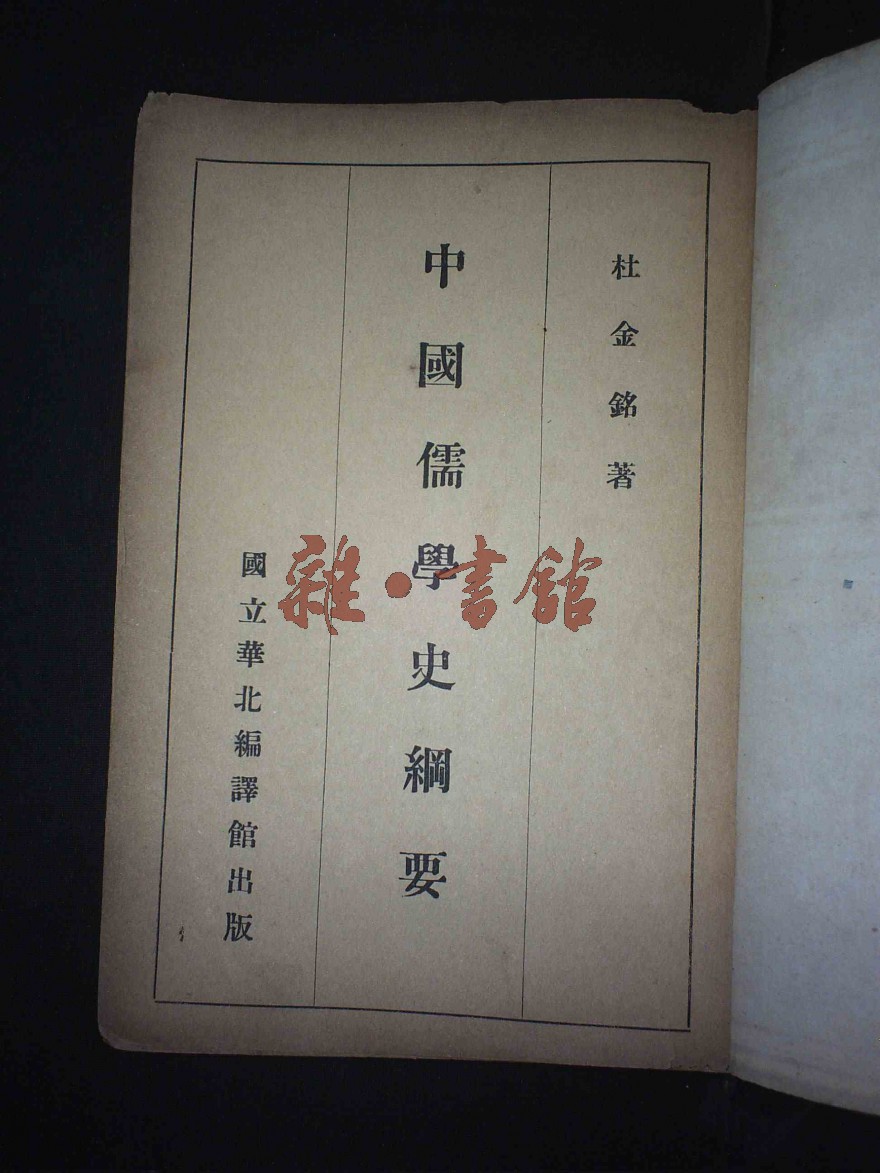 杜金銘著
中國儒學史綱要
國立華北編譯館出版
雜·書館